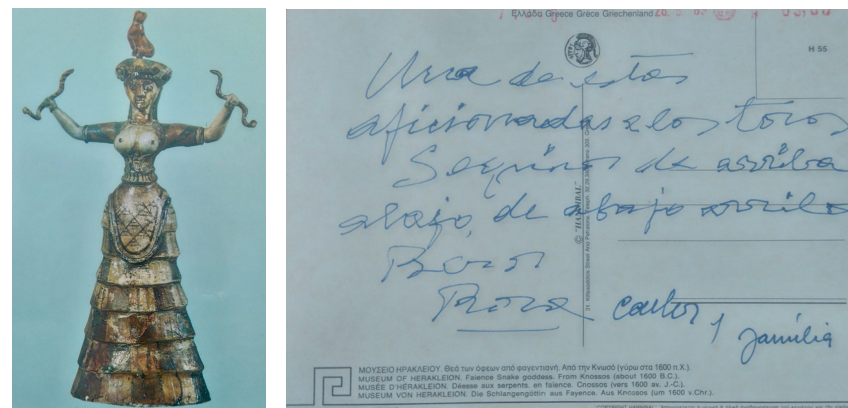 Ελλάδα Greece Grèce Griechenland
H 55
Una de estas
aficionadas a los toros
Seguimos de arriba
abajo, de abajo arriba
Besos
Rosa
Carlos y família
© "HANNIBAL"
ΜΟΥΣΕΙΟ ΗΡΑΚΛΕΙΟΥ. Θεά των όφεων από φαγεντιανή. Από την Κνωσό (γύρω στα 1600 π.Χ.).
MUSEUM OF HERAKLEION. Faience Snake goddess. From Knossos (about 1600 B.C.).
MUSÉE D'HERAKLEION. Déesse aux serpents, en faïence. Cnossos (vers 1600 av. J.-C.).
MUSEUM VON HERAKLEION. Die Schlangengöttin aus Fayence. Aus Knossos (um 1600 v.Chr.).